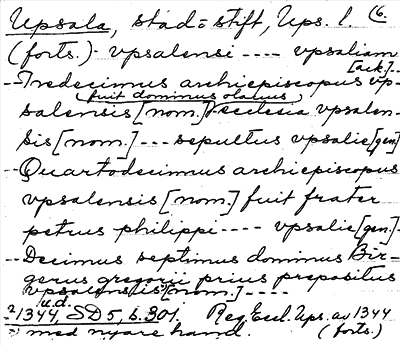 Upsala, stad = stift, Ups. l. (6.
(forts.) - vpsalensi ---- vpsaliam
[ack]..
-- Tredecimus archiepiscopus vp-
fuit dominus olauus
salensis [nom.] ecclecia vpsalen-
sis [nom.] --- sepultus vpsalie [gen]
-- Quartodecimus archiepiscopus
vpsalensis [nom.] fuit frater
petrus philippi ---- vpsalie [gen.] -
-- Decimus septimus dominus Bir-
gerus gregorii prius prepositus
vpsalensis [nom.] ----
u.d.
1344, SD 5, s. 301. Reg. Eccl. Ups. av 1344
med nyare hand. (forts.)